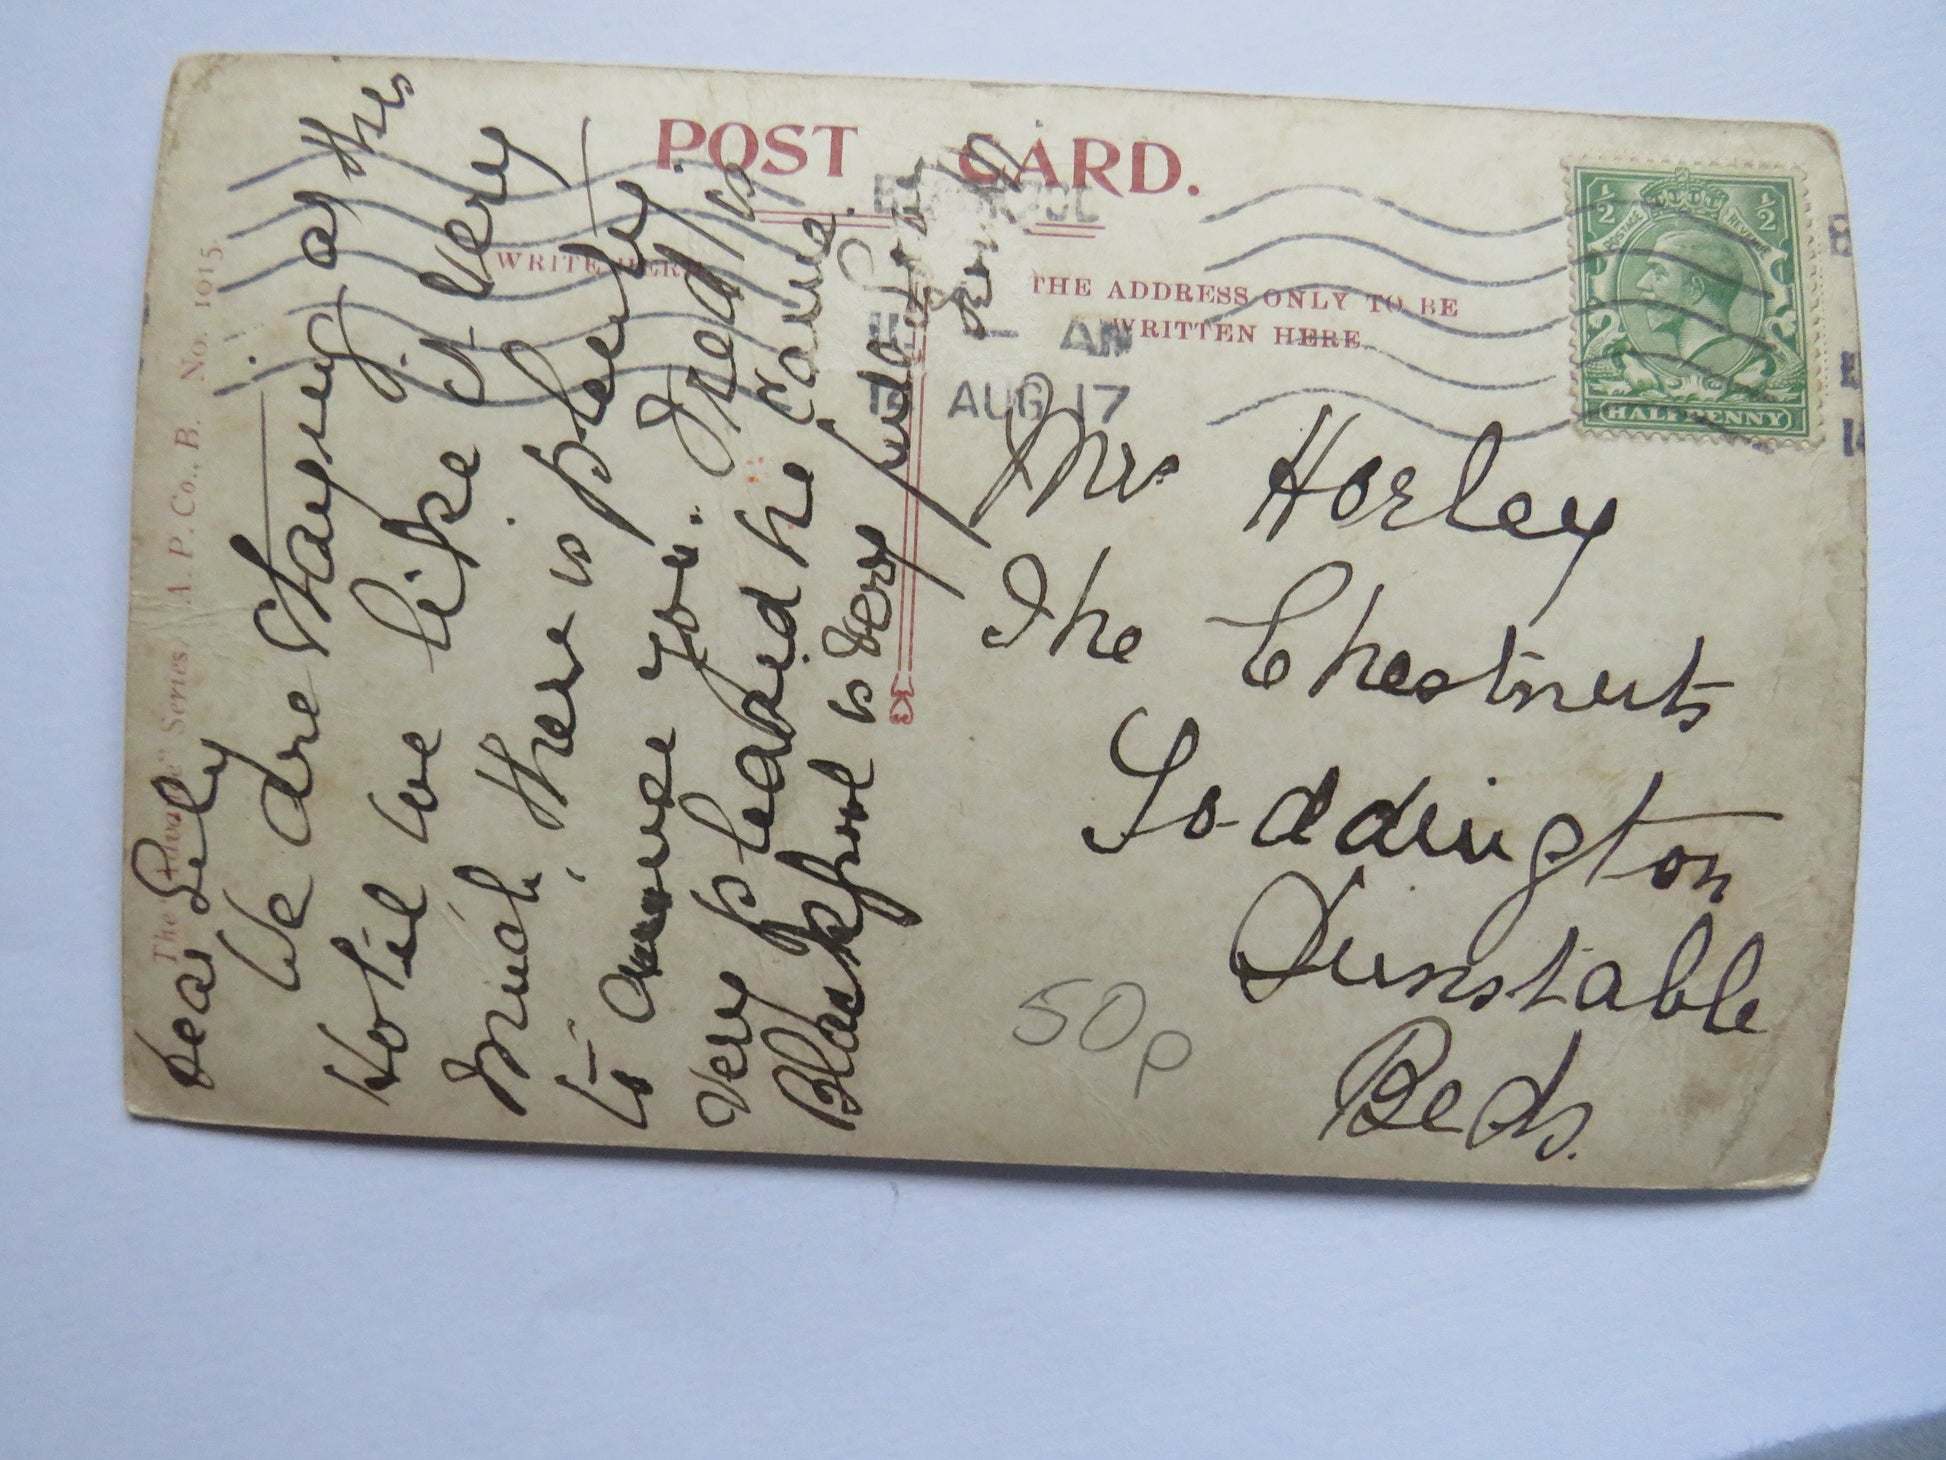 POST CARD.
WRITE HERE
THE ADDRESS ONLY TO BE
WRITTEN HERE
The "Advance" Series A. P. Co., B. No. 1015.
BLACKPOOL
AM
AUG 17
½ ½
POSTAGE REVENUE
HALFPENNY
Dear Lily
We are staying at this
Hotel we like it very
much, there is plenty
to amuse you. Fred is
Very pleased he came
Blackpool is very full
Mrs Horley
The Chestnuts
Toddington
Dunstable
Beds.
50p